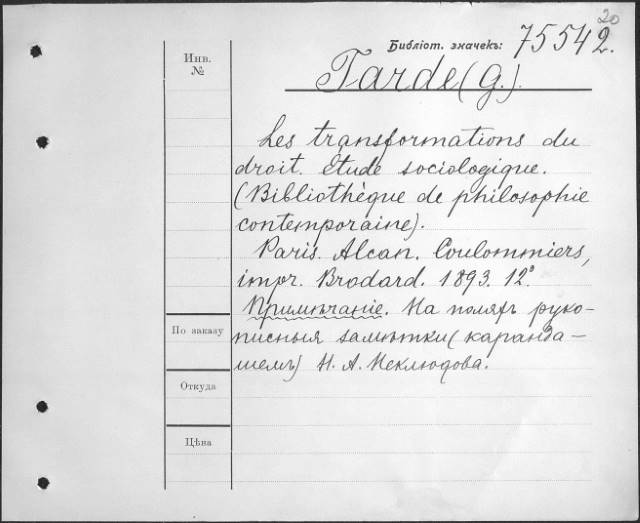 20
Библіот. значекъ: 75542.
Инв.
№
Tarde (G.).
Les transformations du
droit. Étude sociologique.
(Bibliothèque de philosophie
contemporaine).
Paris. Alcan. Coulommiers,
impr. Brodard. 1893. 12°.
Примѣчаніе. На поляхъ руко-
писныя замѣтки (каранда-
шемъ) Н. А. Неклюдова.
По заказу
Откуда
Цѣна